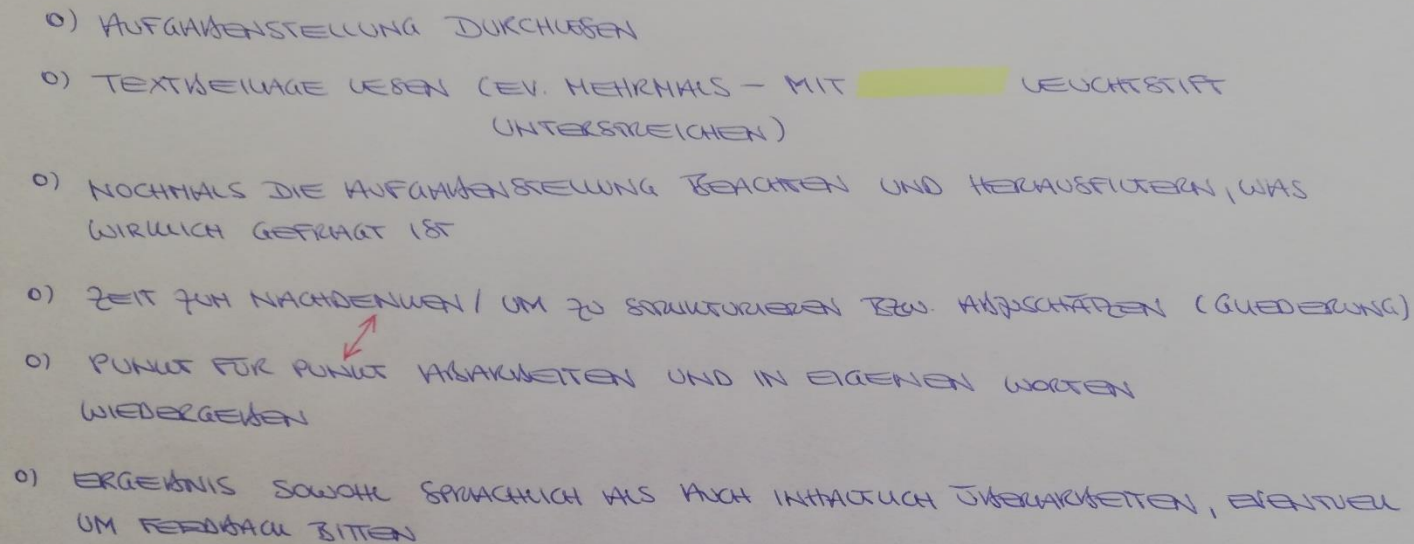 o) AUFGABENSTELLUNG DURCHLESEN
o) TEXTBEILAGE LESEN (EV. MEHRMALS – MIT LEUCHTSTIFT
UNTERSTREICHEN)
o) NOCHMALS DIE AUFGABENSTELLUNG BEACHTEN UND HERAUSFILTERN, WAS
WIRKLICH GEFRAGT IST
o) ZEIT ZUM NACHDENKEN / UM ZU STRUKTURIEREN BZW. ABZUSCHÄTZEN (GLIEDERUNG)
o) PUNKT FÜR PUNKT ABARBEITEN UND IN EIGENEN WORTEN
WIEDERGEBEN
o) ERGEBNIS SOWOHL SPRACHLICH ALS AUCH INHALTLICH ÜBERARBEITEN, EVENTUELL
UM FEEDBACK BITTEN